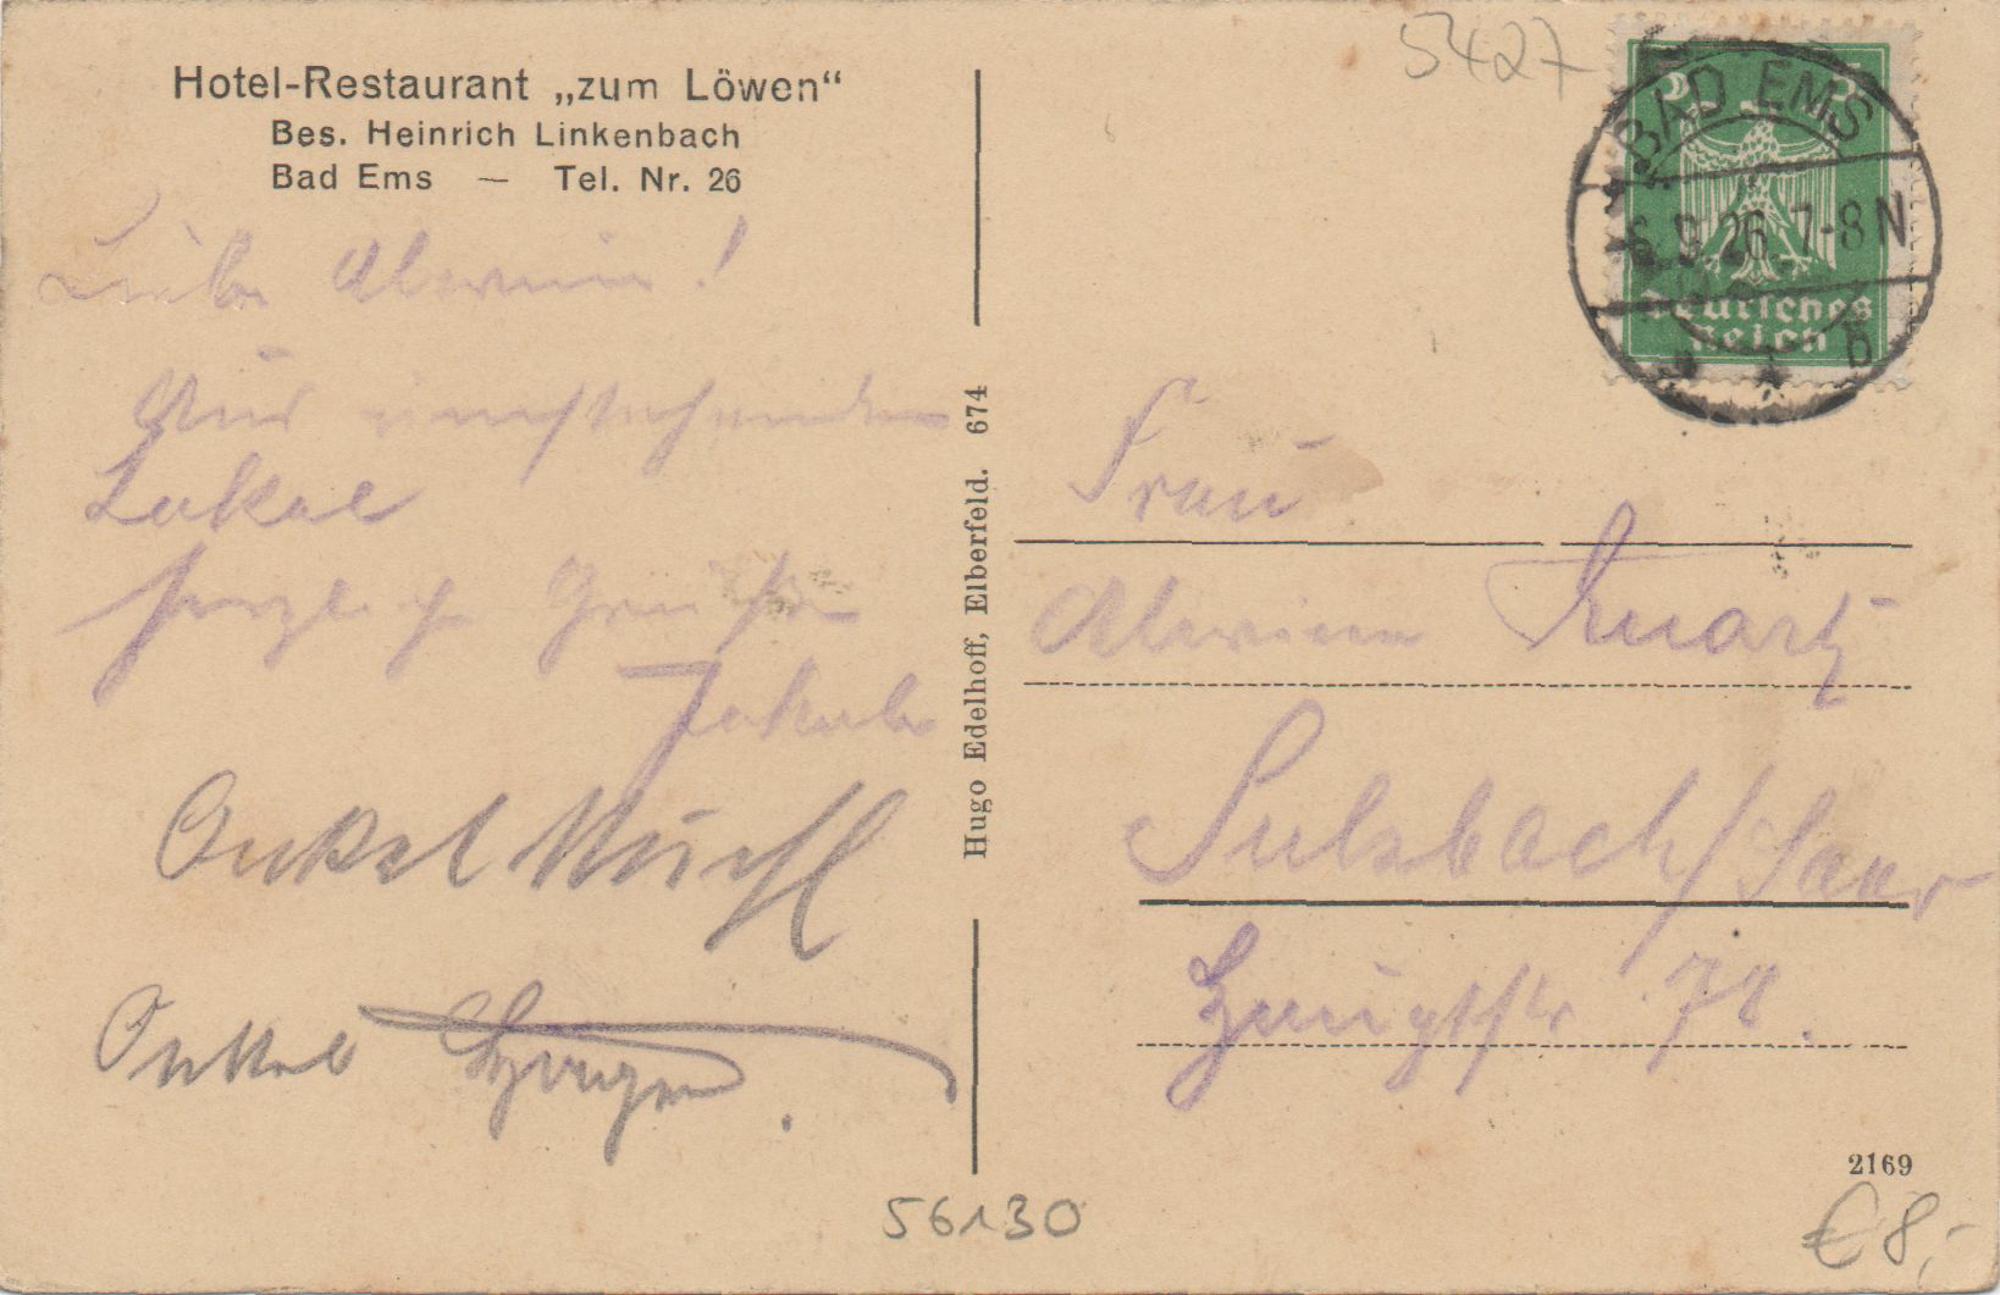 Hotel-Restaurant „zum Löwen“
Bes. Heinrich Linkenbach
Bad Ems — Tel. Nr. 26
Liebe Alwine!
Aus umstehenden
Lokal
herzliche Grüße
Jakob
Onkel
Onkel
Hugo Edelhoff, Elberfeld. 674
5427
5
BAD EMS
6.9.26. 7-8 N
Deutsches
Reich
* B
Frau
Alwine
Sulzbach/Saar
Hauptstr. 78.
2169
56130
€ 8,-